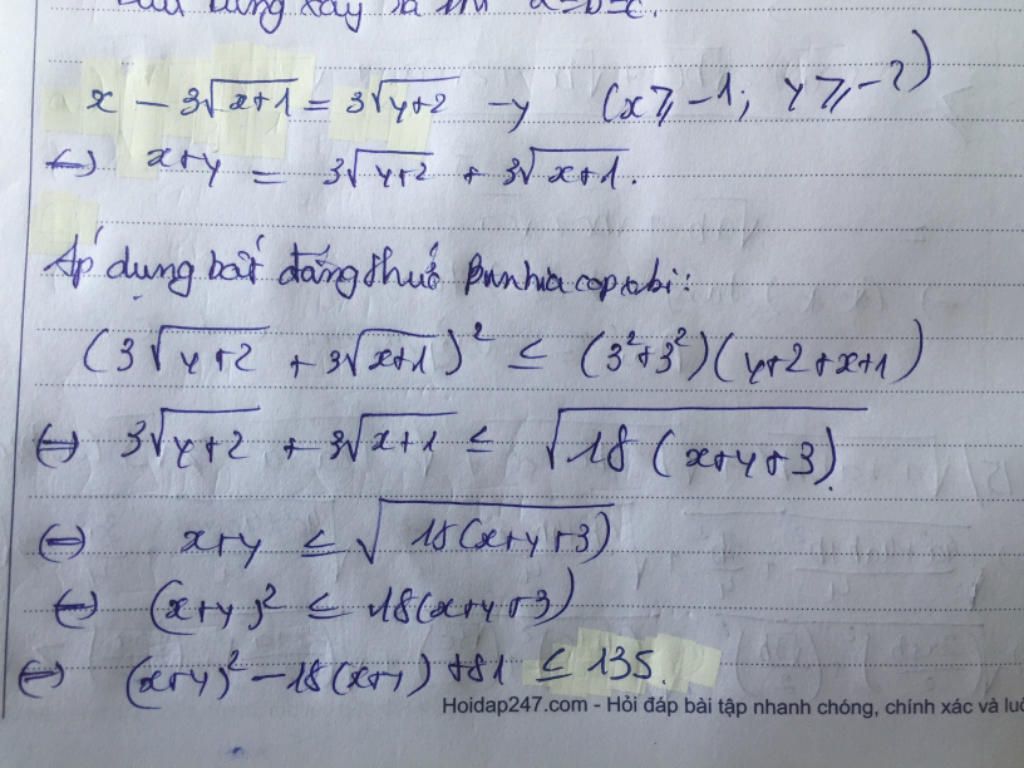 xảy ra khi a=b=c.
x - 3√(x+1) = 3√(y+2) - y (x ⩾ -1; y ⩾ -2)
(-) x+y = 3√(y+2) + 3√(x+1).
Áp dụng bất đẳng thức Bunhiacopxki:
(3√(y+2) + 3√(x+1))² ≤ (3²+3²)(y+2+x+1)
(=) 3√(y+2) + 3√(x+1) ≤ √(18(x+y+3)).
(=) x+y ≤ √(18(x+y+3))
(=) (x+y)² ≤ 18(x+y+3)
(=) (x+y)² - 18(x+y) + 81 ≤ 135.
Hoidap247.com - Hỏi đáp bài tập nhanh chóng, chính xác và